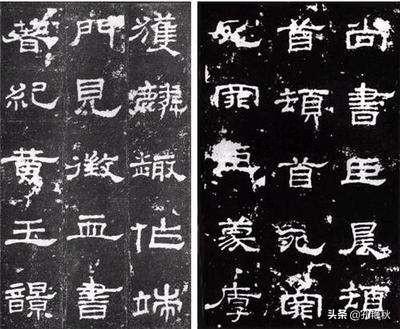 尚書臣晨頓
首頓首死罪
死罪臣蒙厚
獲麟趣作端
門見徵血書
著紀黃玉
头条